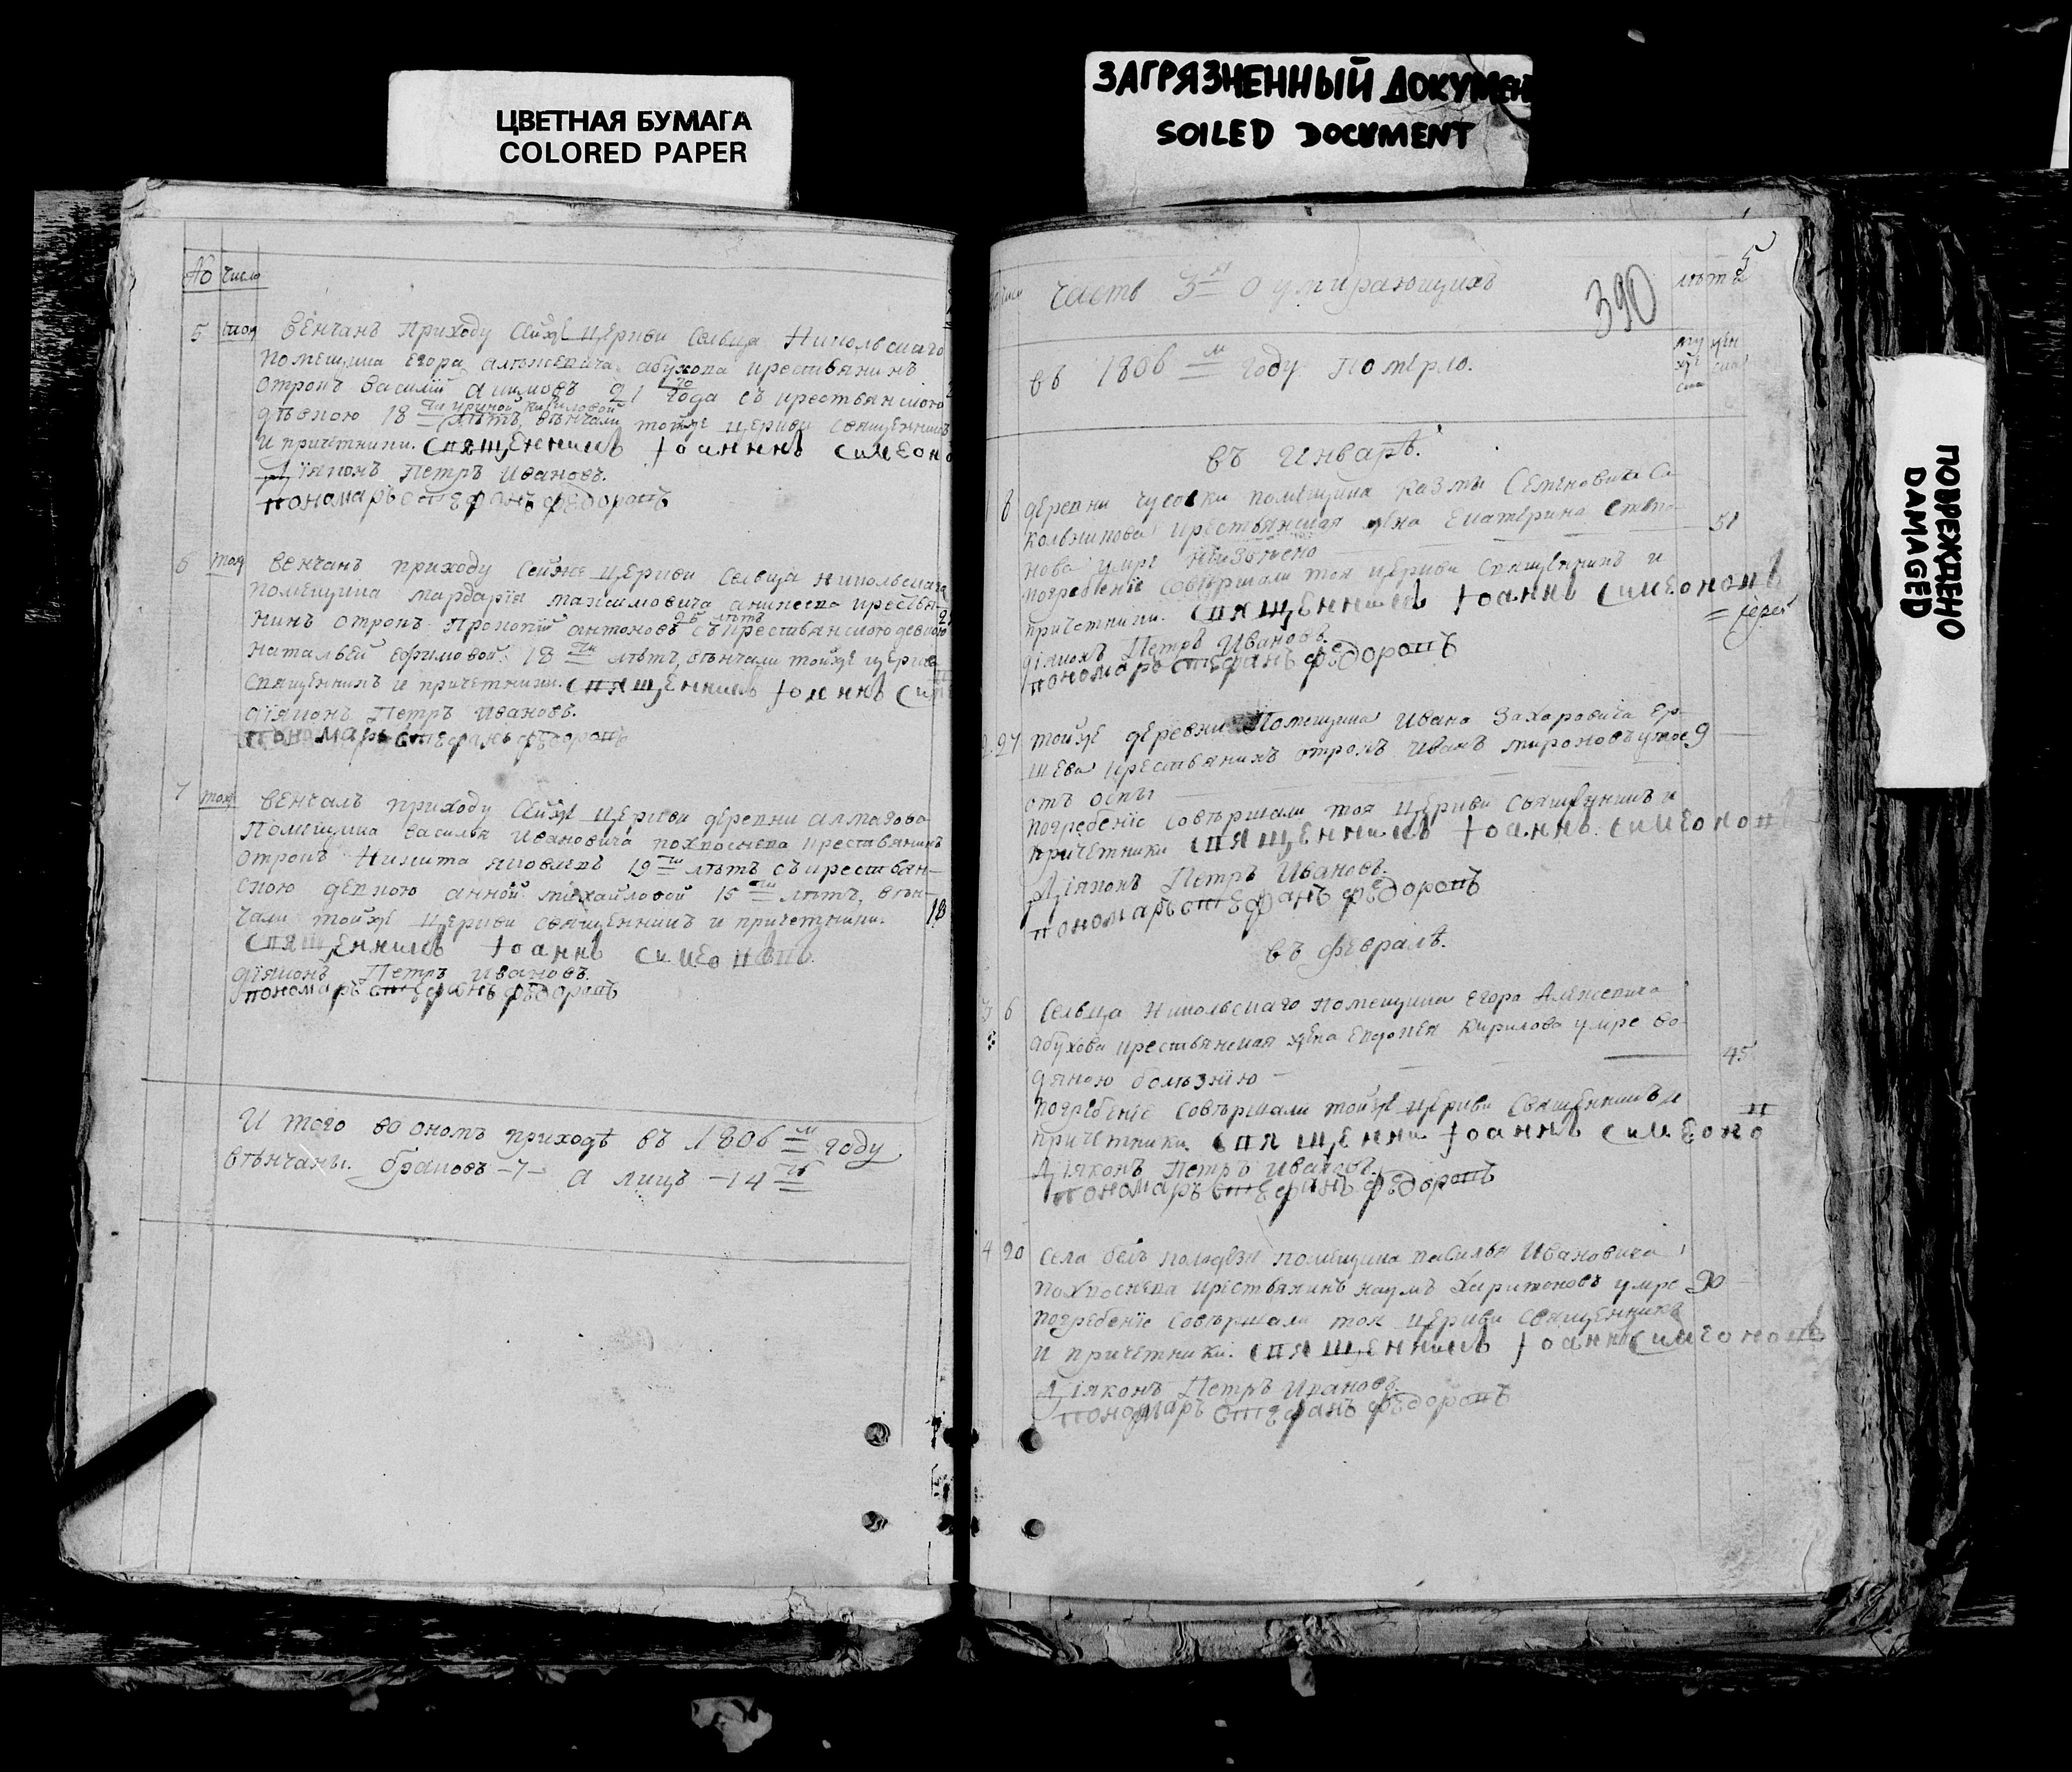 ЦВЕТНАЯ БУМАГА
COLORED PAPER
ЗАГРЯЗНЕННЫЙ ДОКУМЕН
SOILED DOCUMENT
ПОВРЕЖДЕНО
DAMAGED
№ число
5 тоя венчанъ приходу сейже церкви сельца Никольскаго
помещика Егора абухова крестьянинъ
отрокъ василий 21 го года съ крестьянскою
девкою 18 летъ, венчали тойже церкви священникъ
и причетники. священникъ Iоаннъ симеоно
Дiяконъ Петръ Ивановъ.
пономарь стефанъ федоровъ
6 тоя венчанъ приходу сейже церкви сельца никольскаго
помещика мардарiя максимовича аникеева крестья
нинъ отрокъ Прокопий антоновъ 26 летъ съ крестьянскою девкою
натальей ефимовой 18 ти летъ, венчали тойже церкви
священникъ и причетники. священникъ Iоаннъ сим
дiяконъ Петръ Ивановъ.
пономарь стефанъ федоровъ
7 тоя венчалъ приходу сейже церкви деревни алмазова
помещика василья Ивановича похвоснева крестьянинъ
отрокъ Никита яковлевъ 19 ти летъ съ крестьян-
скою девкою анной михайловой 15 ти летъ, вен-
чали тойже церкви священникъ и причетники. 18
священникъ Iоаннъ симеоновъ
дiяконъ Петръ Ивановъ.
пономарь стефанъ федоровъ
И того во ономъ приходѣ въ 1806 м году
вѣнчаны. браковъ -7- а лицъ -14 ть
5
часть 3 я о умирающихъ
390
летъ
въ 1806 м году померло.
му жен
же ска
ска
въ Инварѣ.
8 деревни помещика казмы Семеновича Со
кольникова крестьянская жена Екатерина степа- 51
нова умре
погребенiе совѣршали тоя церкви священникъ и
причетники. священникъ Iоаннъ симеоновъ
= iерей
дiяконъ Петръ Ивановъ.
пономарь стефанъ федоровъ
2 27 тойже деревни Помещика Ивана Захаровича Ер-
шева крестьянинъ отрокъ Иванъ мироновъ умре 9
отъ оспы
погребенiе совѣршали тоя церкви священникъ и
причетники священникъ Iоаннъ симеонов
Дiяконъ Петръ Ивановъ.
пономарь стефанъ федоровъ
въ Февралѣ.
3 6 сельца Никольскаго помещика Егора
абухова крестьянская жена Евдокея Кирилова умре во
дяною болѣзнiю 45
погребенiе совѣршали тойже церкви священникъ и
причетники. священни Iоаннъ симеоно
Дiяконъ Петръ Ивановъ.
пономарь стефанъ федоровъ
4 20 села белъ колодезя помещика василья Ивановича
похвоснева крестьянинъ наумъ Харитоновъ умре 90
погребенiе совѣршали тоя церкви священникъ
и причетники. священникъ Iоаннъ симеоновъ
Дiяконъ Петръ Ивановъ.
пономарь стефанъ федоровъ